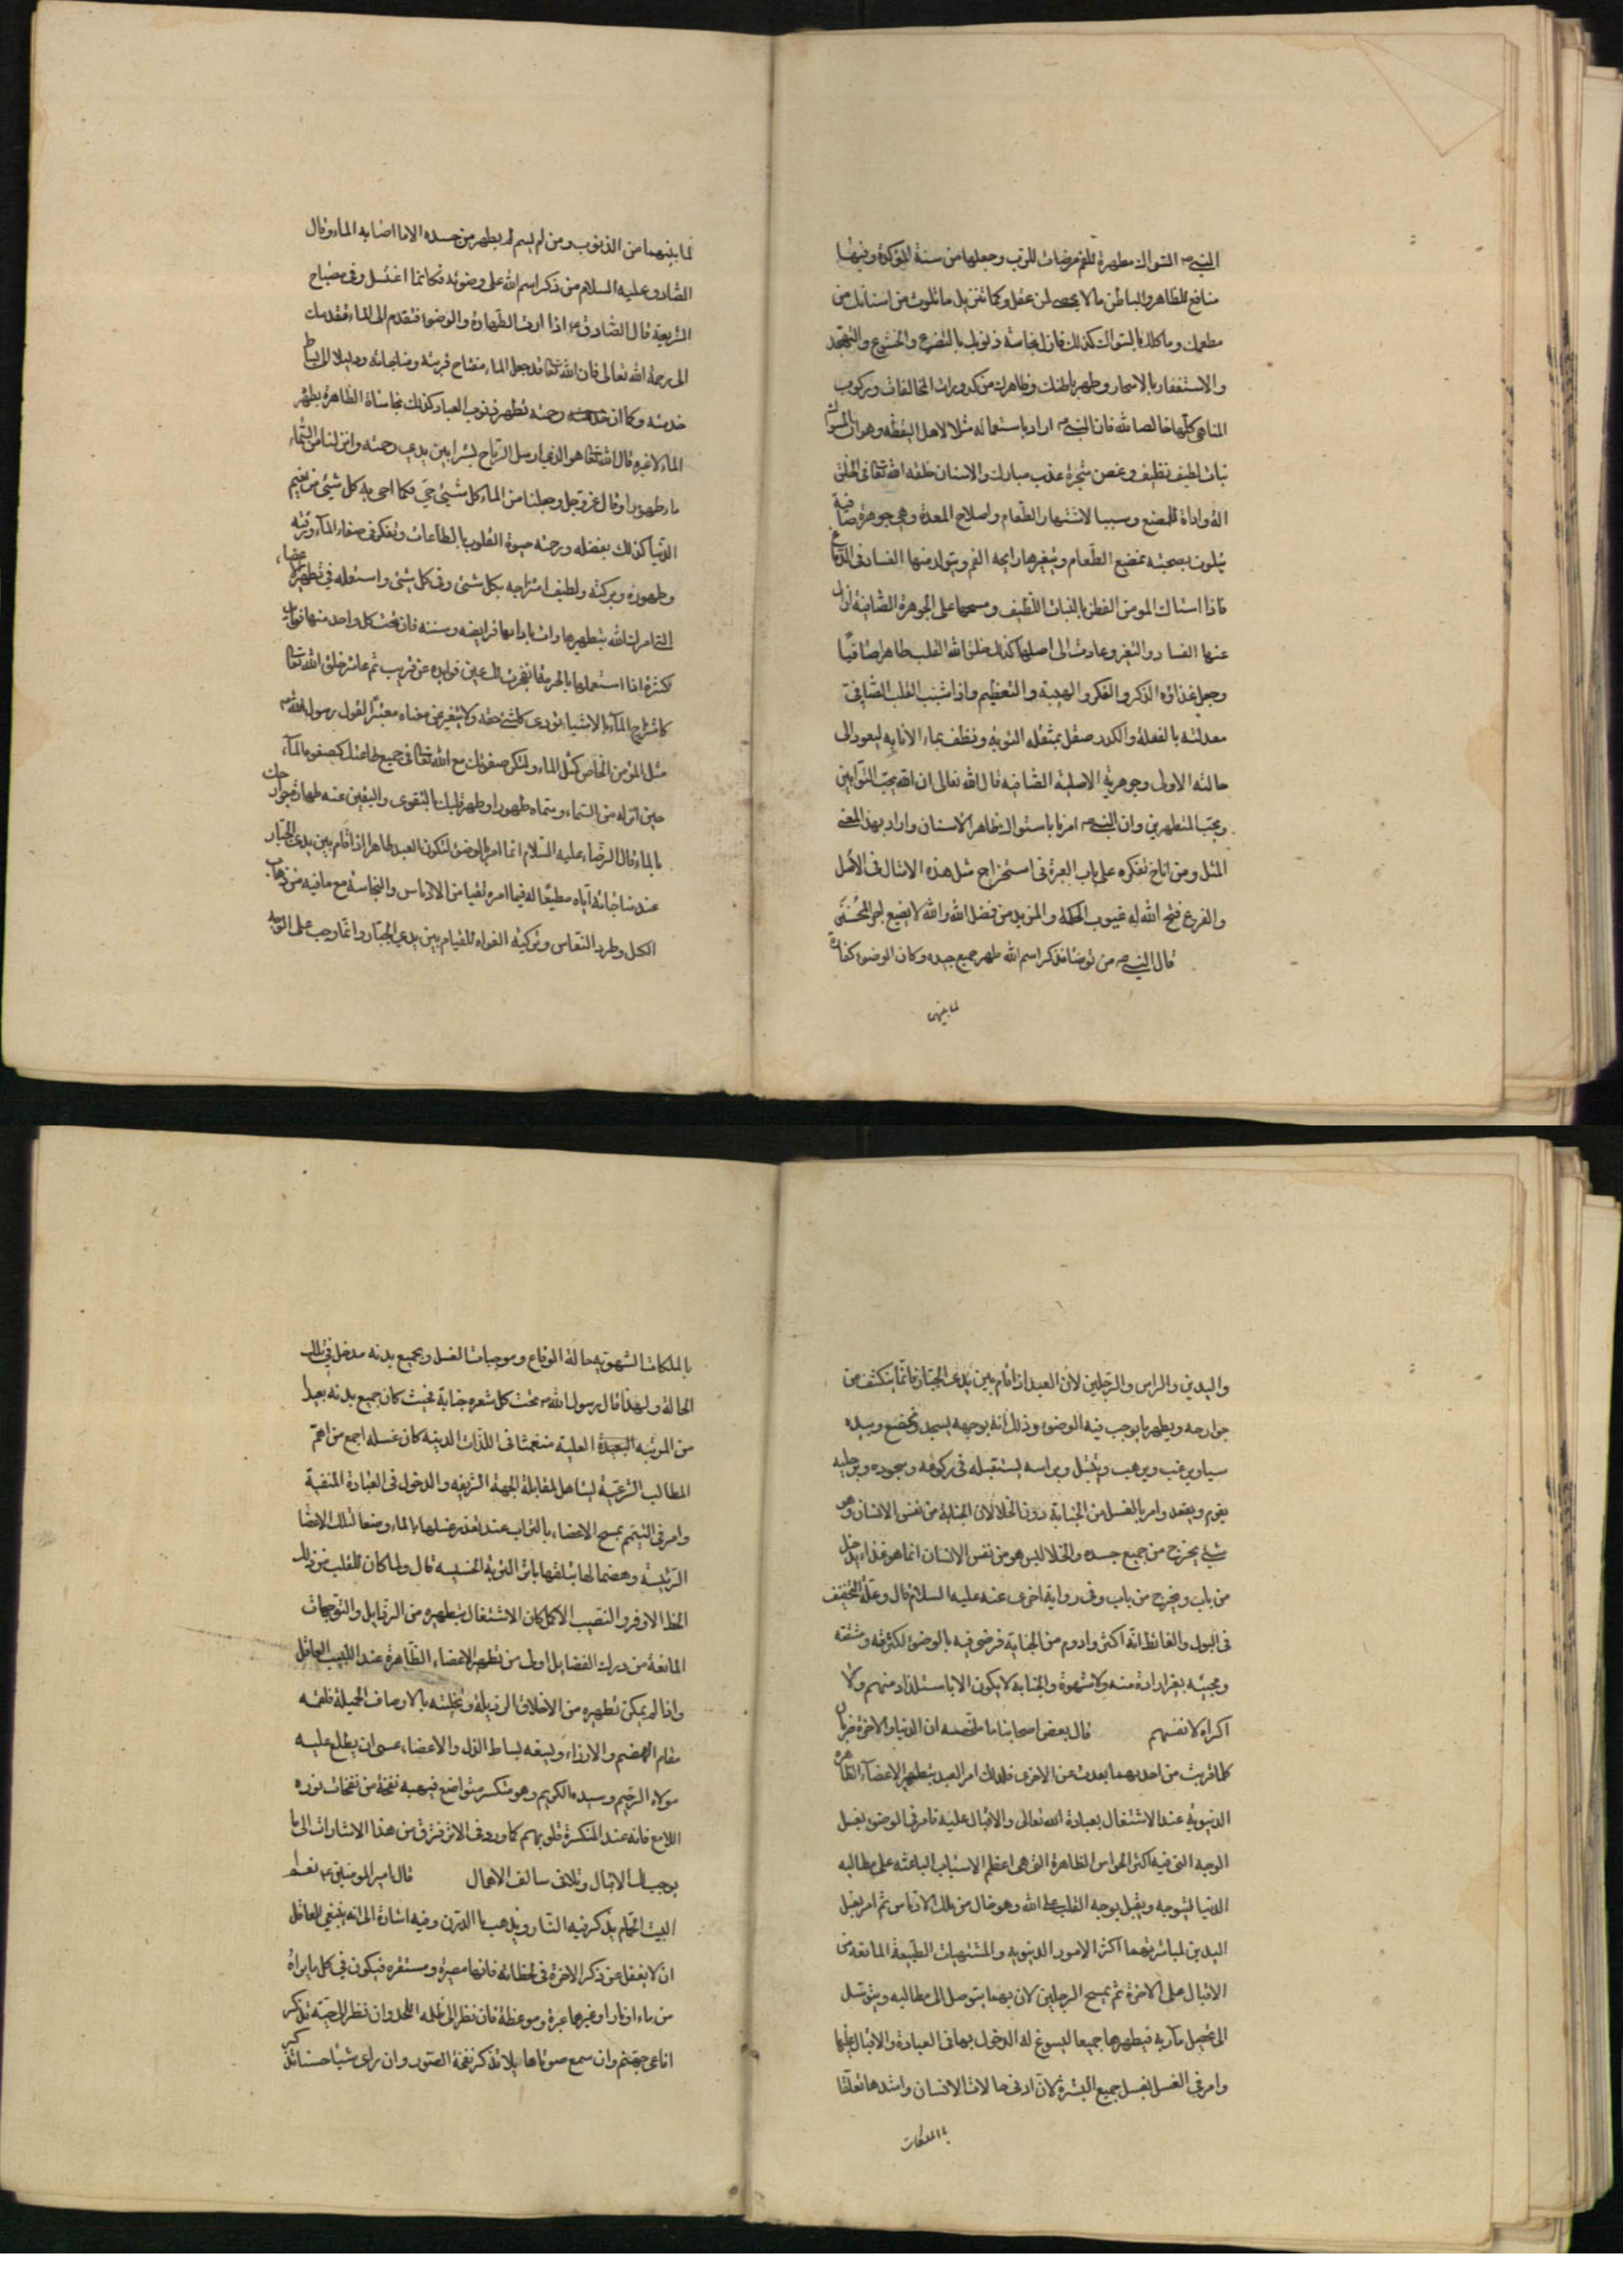 النبي ص السواك مطهرة للفم مرضات للرب وجعلها من سنة المؤكدة وفيها
منافع للظاهر والباطن ما لا يحصى لمن عقل وكما تزيل ما تلوث من اسنانك من
مطعمك وماكلك بالسواك كذلك فازل نجاسة ذنوبك بالتضرع والخشوع والتهجد
والاستغفار بالاسحار وطهر باطنك وظاهرك من كدورات المخالفات وركوب
المناهي كلها خالصا لله فان النبي ص اراد باستعماله مثلا لاهل اليقظه وهو ان السواك
نبات لطيف نظيف وغصن شجرة عذب مبارك والاسنان خلقه الله تعالى في الخلق
الة واداة للمضغ وسببا لاشتهار الطعام واصلاح المعدة وهي جوهرة صافية
يتلوث بصحبته بمضغ الطعام ويتغير بها رايحه الفم ويتولد منها الفساد في الدماغ
فاذا استاك المومن الفطن بالنبات اللطيف ومسحها على الجوهرة الصافية ازال
عنها الفساد والتغير وعادت الى اصلها كذلك خلق الله القلب طاهرا صافيا
وجعل غذاؤه الذكر والفكر والهيبة والتعظيم واذا شيب القلب الصافي
معدلته بالغفلة والكدر صقل بمثقله التوبة ونظف بماء الانابه ليعود الى
حالته الاولى وجوهرية الاصلية الصافيه قال الله تعالى ان الله يحب التوابين
ويحب المتطهرين وان النبي ص امرنا باستواك بظاهر الاسنان واراد بهذا المعنى
المثل ومن اناخ تفكره على باب العبرة في استخراج مثل هذه الامثال في الاصل
والفرع فتح الله له عيوب الحكمة والمزيد من فضل الله والله لا يضيع اجر المحسنين
قال النبي ص من توضأ فذكر اسم الله طهر جميع جسده وكان الوضوء كفارة
لما بينهما
لما بينهما من الذنوب ومن لم يسم لم يطهر من جسده الا ما اصابه الماء وقال
الصادق عليه السلام من ذكر اسم الله على وضوئه فكانما اغتسل وفي مصباح
الشريعة قال الصادق ع اذا اردت الطهارة والوضوء فتقدم الى الماء تقدمك
الى رحمة الله تعالى فان الله تعالى قد جعل الماء مفتاح قربته ومناجاته ودليلا الى بساط
خدمته وكما ان رحمته تطهر ذنوب العباد كذلك نجاسات الظاهرة يطهر
الماء لا غيره قال الله تعالى هو الذي ارسل الرياح بشرا بين يدي رحمته وانزلنا من السماء
ماء طهورا وقال عز وجل وجعلنا من الماء كل شيئ حي فكما احيى به كل شيئ من نعيم
الدنيا كذلك بفضله ورحمته حيوة القلوب بالطاعات وتفكر في صفاء الماء ورقته
وطهوره وبركته ولطيف امتزاجه بكل شيئ وفي كل شيئ واستعمله في تطهير الاعضاء
التي امرك الله بتطهيرها وات بادابها فرايضه وسننه فان تحت كل واحد منها فوايد
كثيرة اذا استعملها بالحرمة انفجرت لك عين فوايده عن قريب ثم عاشر خلق الله تعالى
كامتزاج الماء بالاشياء يؤدي كل شيئ حقه ولا يتغير عن معناه معتبرا لقول رسول الله ص
مثل المؤمن الخاص كمثل الماء ولتكن صفوتك مع الله تعالى في جميع طاعتك كصفوة الماء
حين انزله من السماء وسماه طهورا وطهر قلبك بالتقوى واليقين عند طهارة جوارحك
بالماء قال الرضاء عليه السلام انما امر بالوضوء لتكون العبد طاهرا اذا قام بين يدي الجبار
عند مناجاته اياه مطيعا له فيما امره نقيا من الادناس والنجاسة مع ما فيه من ذهاب
الكسل وطرد النعاس وتزكية الفواد للقيام بين يدي الجبار وانما وجب على الوجه
واليدين والراس والرجلين لان العبد اذا قام بين يدي الجبار فانما ينكشف من
جوارحه ويطهر ما وجب فيه الوضوء وذلك انه بوجهه يسجد ويخضع وبيده
سياوير غب ويرهب ويتبتل وبراسه يستقبله في ركوعه وسجوده وبرجليه
يقوم ويقعد وامر بالغسل من الجنابة دون الخلا لان الجنابة من نفس الانسان وهو
شيئ يخرج من جميع جسده والخلا ليس هو من نفس الانسان انما هو غذاء يدخل
من باب ويخرج من باب وفي رواية اخرى عنه عليه السلام قال وعلة التخفيف
في البول والغائط انه اكثر وادوم من الجنابة فرضى فيه بالوضوء لكثرته ومشقته
ومجيئه بغير ارادة منه ولا شهوة والجنابة لا يكون الا بالاستلذاذ منهم ولا
اكراه لانفسهم قال بعض اصحابنا ما ملخصه ان الدنيا والاخرة ضرتان
كلما قربت من احديهما بعدت عن الاخرى فلذلك امر العبد بتطهير الاعضاء الظاهرة
الدنيوية عند الاشتغال بعبادة الله تعالى والاقبال عليه فامر في الوضوء بغسل
الوجه التي فيه اكثر الحواس الظاهرة التي هي اعظم الاسباب الباعثه على مطالبه
الدنيا ليتوجه ويقبل بوجه القلب على الله وهو خال من تلك الادناس ثم امر بغسل
اليدين لمباشرتهما اكثر الامور الدنيويه والمشتهيات الطبيعة المانعة من
الاقبال على الاخرة ثم بمسح الرجلين لان بهما يتوصل الى مطالبه ويتوسل
الى تحصيل مآربه فيطهرها جميعا ليسوغ له الدخول بها في العبادة والاقبال عليها
وامر في الغسل بغسل جميع البشرة لان ادنى حالات الانسان واشدها تعلقا
بالملكات
بالملكات الشهوية حالة الوقاع وموجبات الغسل ولجميع بدنه مدخل في تلك
الحالة ولهذا قال رسول الله ص تحت كل شعره جنابة فحيث كان جميع بدنه بعيدا
من المرتبه العلية منغمسا في اللذات الدنيه كان غسله اجمع من اهم
المطالب الشرعية ليتاهل لمقابلة الجهة الشريفه والدخول في العبادة المنيفية
وامر في التيمم بمسح الاعضاء بالتراب عند تعذر غسلها بالماء وضعا لتلك الاعضا
الرئيسة وهضما لها بتلقيها باثر التربة الخسيسه قال ولما كان للقلب من ذلك
الحظ الاوفر والنصيب الاكمل كان الاشتغال بتطهيره من الرذايل والتوجهات
المانعة من درك الفضايل اولى من تطهير الاعضاء الظاهرة عند اللبيب العاقل
واذا لم يمكن تطهيره من الاخلاق الرذيلة وتحليته بالاوصاف الجميلة فلقمه
مقام الهضم والازراء ويسقه بساط الذل والاعضاء عسى ان يطلع عليه
مولاه الرحيم وسيده الكريم وهو منكسر متواضع فيهبه نفحة من نفحات نوره
اللامع فانه عند المنكسرة قلوبهم كما ورد في الاثر فترق من هذا الاشارات الى ما
يوجب لك الاقبال وتلافى سالف الاهمال قال امير المومنين ع نعم
البيت الحمام يذكر فيه النار ويذهب بالدرن وفيه اشارة الى انه ينبغي للعاقل
ان لا يغفل عن ذكر الاخرة في لحظاته فانها مصيره ومستقره فيكون في كل ما يراه
من ماء او نار او غيرها عبرة وموعظة فان نظر الى ظلمه اللحد وان نظر الى حية تذكر
افاعي جهنم وان سمع صوتا هايلا تذكر نفخة الصور وان راى شيئا حسنا تذكر